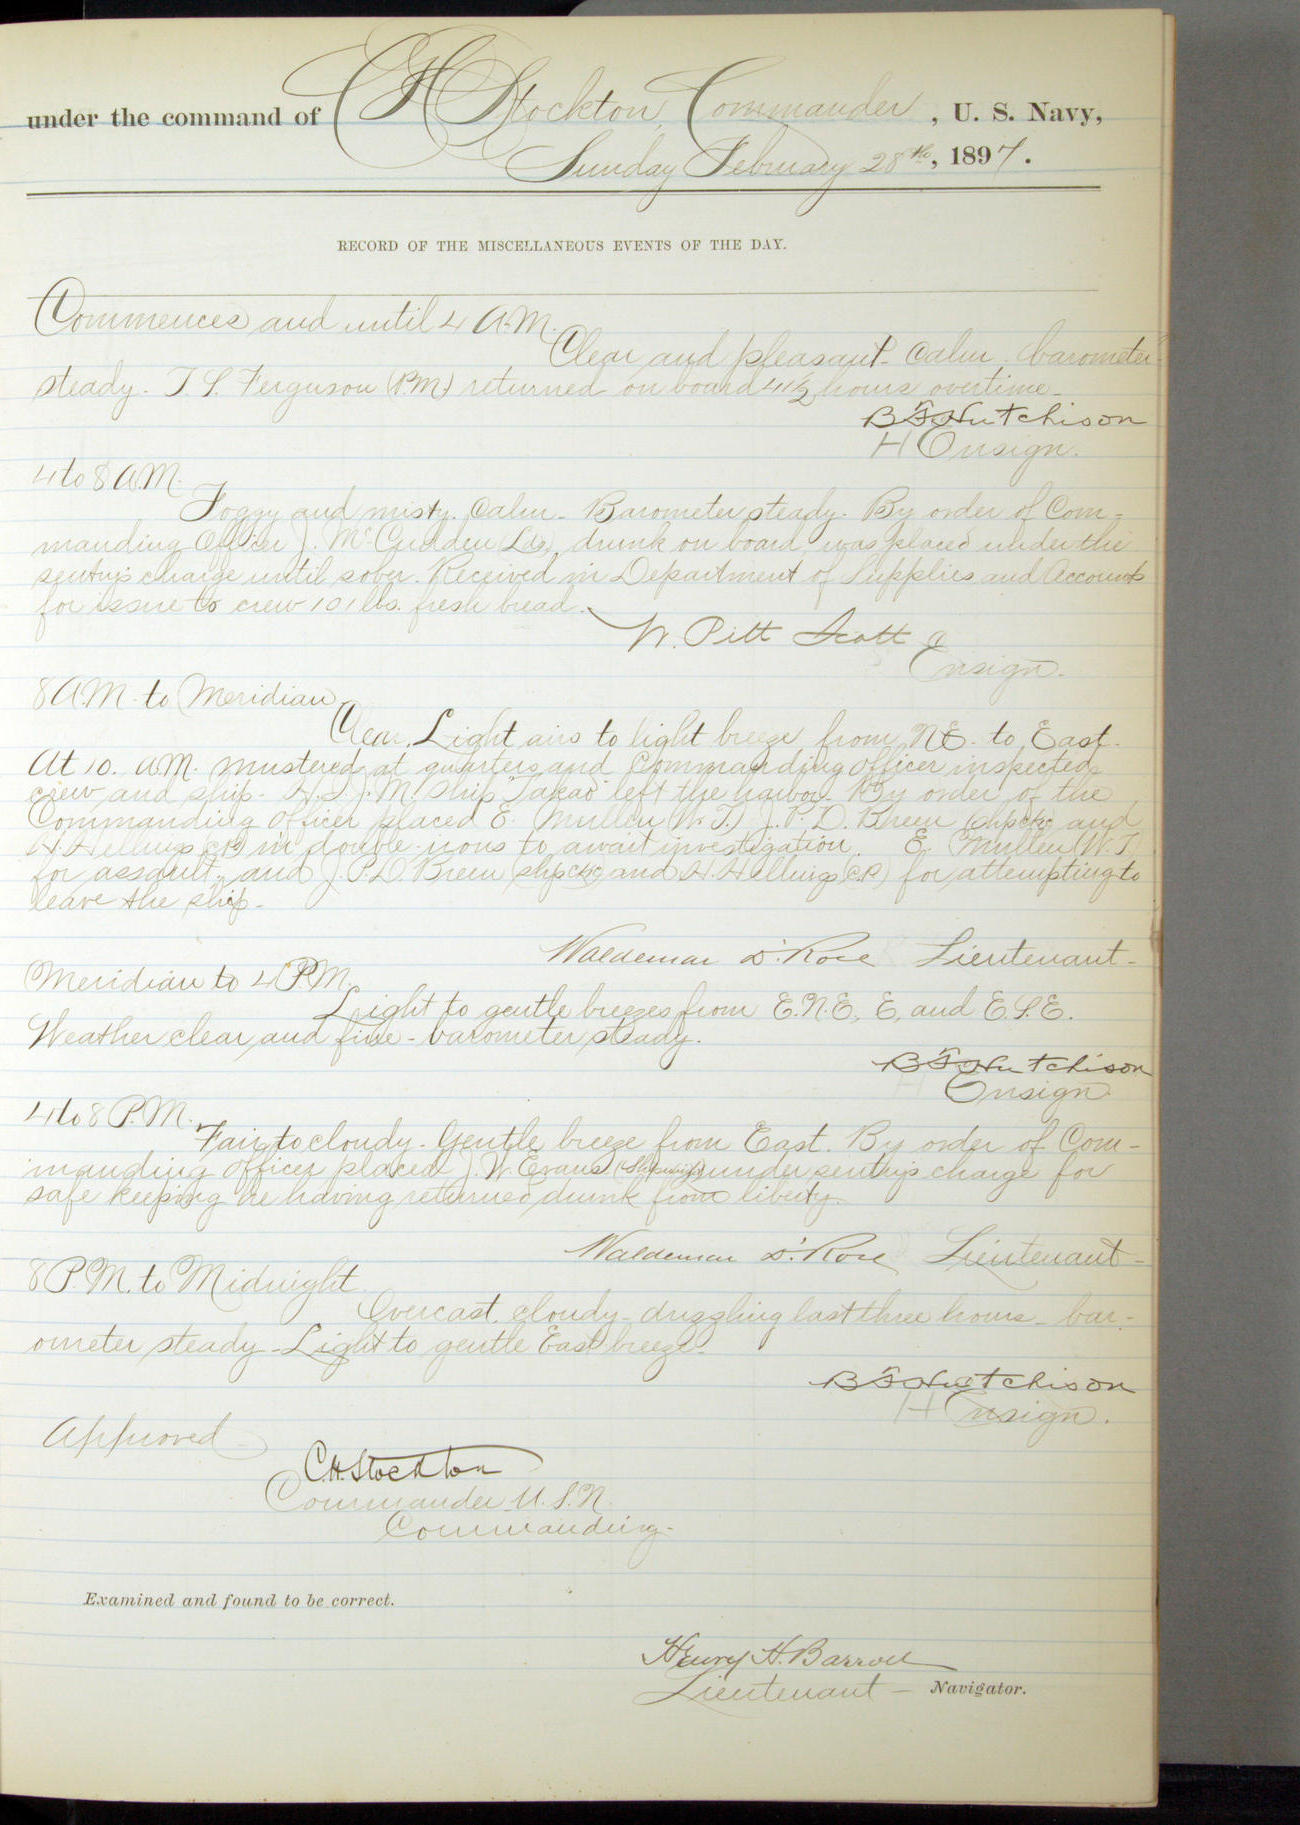 under the command of C H Stockton, Commander, U. S. Navy,
Sunday February 28th, 1897.
RECORD OF THE MISCELLANEOUS EVENTS OF THE DAY.
Commences and until 4 A.M.
Clear and pleasant. Calm. barometer
steady. T. S. Ferguson (P.M.) returned on board 41½ hours overtime.
B F Hutchison
Ensign.
4 to 8 A.M.
Foggy and misty. Calm. Barometer steady. By order of Com-
manding Officer J. Mc Cudden (Lds), drunk on board, was placed under the
sentry's charge until sober. Received in Department of Supplies and Accounts
for issue to crew 101 lbs. fresh bread.
W. Pitt Scott
Ensign.
8 A.M. to Meridian
Clear. Light airs to light breeze from N.E. to East.
At 10. A.M. mustered at quarters and Commanding Officer inspected
crew and ship. H.I.J.M. Ship "Takao" left the harbor. By order of the
Commanding Officer placed E. Mullen (W.T.) J. P. D. Breen and
H. Hellings (C.P.) in double irons to await investigation. E. Mullen (W.T.)
for assault, and J. P. D. Breen and H. Hellings (C.P.) for attempting to
leave the ship.
Waldemar D'. Rose Lieutenant-
Meridian to 4 P.M.
Light to gentle breezes from E.N.E, E, and E.S.E.
Weather clear and fine - barometer steady.
B F Hutchison
Ensign
4 to 8 P.M.
Fair to cloudy. Gentle breeze from East. By order of Com-
manding Officer placed J. W. Evans under sentry's charge for
safe keeping he having returned drunk from liberty.
Waldemar D'. Rose Lieutenant-
8 P.M. to Midnight
Overcast, cloudy - drizzling last three hours - bar-
ometer steady - Light to gentle East breeze.
B F Hutchison
Ensign.
Approved
C. H. Stockton
Commander U.S.N.
Commanding.
Examined and found to be correct.
Henry H. Barroll
Lieutenant - Navigator.